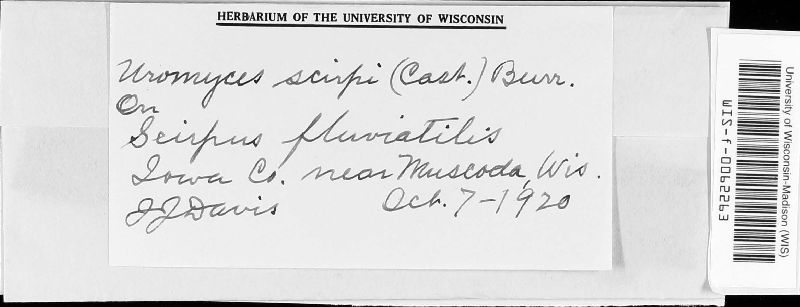 HERBARIUM OF THE UNIVERSITY OF WISCONSIN
Uromyces scirpi (Cast.) Burr.
On
Scirpus fluviatilis
Iowa Co. near Muscoda, Wis.
JJDavis Oct. 7-1920
University of Wisconsin-Madison (WIS)
WIS-f-0092293